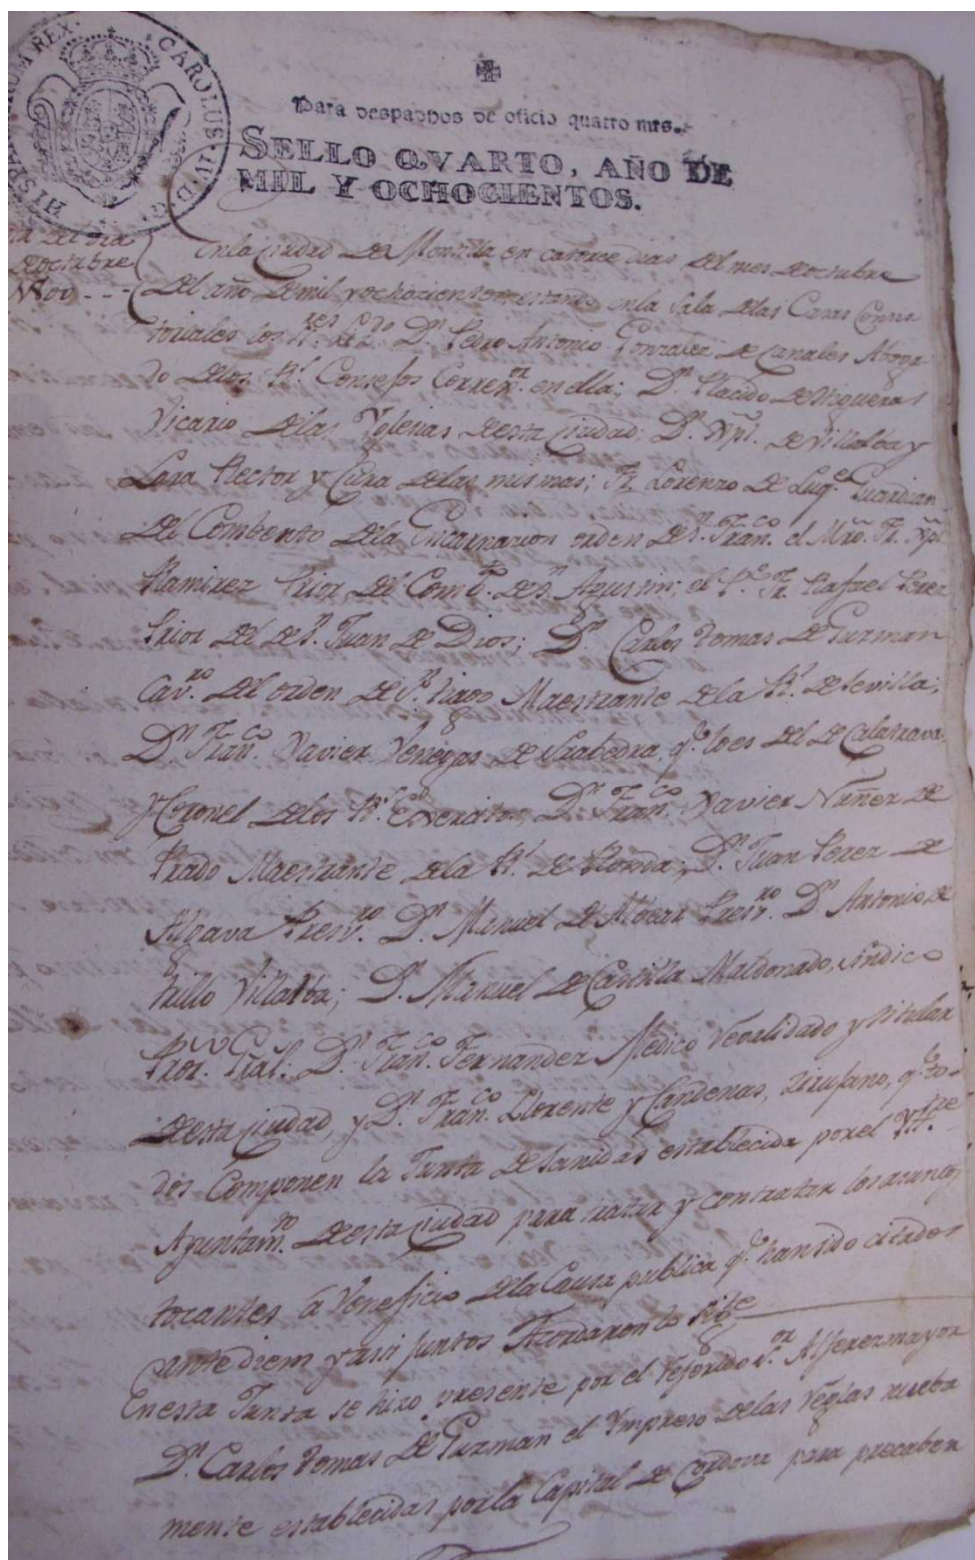 HISPANIARUM REX. CAROLUS. IV. D. G.
Para despachos de oficio quatro mrs.
SELLO QVARTO, AÑO DE
MIL Y OCHOCIENTOS.
del dia
de octubre
En la Ciudad de Montilla en catorce dias del mes de octubre
del año de mil y ochocientos en la Sala de las Casas Consis
toriales los S.res Lz.do D.n Pedro Antonio Gonzalez de Canales Aboga
do de los R.s Consejos Correx.or en ella; D.n Placido de Vigueras
Vicario de las Yglesias de esta Ciudad; D.n Xpl. de Villalba y
Lara Rector y Cura de las mismas; Fr. Lorenzo de Luq.e Guardian
del Combento de la Encarnazion orden de S.n Fran.co el Mro. Fr. Xpl
Ramirez Prior del Comb.to de S.n Agustin; el P.e Fr. Rafael Perez
Prior del de S.n Juan de Dios; D.n Carlos Tomas de Guzman
Cav.ro del orden de S.n tiago Maestrante de la R.l de Sevilla;
D.n Fran.co Xavier Venegas de Saabedra q.e lo es del de Calatrava
y Coronel de los R.s Exercitos, D.n Fran.co Xavier Nuñez de
Prado Maestrante de la R.l de Ronda; D.n Juan Perez de
Algava Presv.ro D.n Manuel de Presv.ro D.n Antonio de
Trillo Villalba; D.n Manuel de Castilla Maldonado, Sindico
Pror. Gral. D.n Fran.co Fernandez Medico revalidado y titular
de esta Ciudad, y D.n Fran.co Llorente y Cardenas, zirujano, q.e to-
dos Componen la Junta de Sanidad establecida por el Y.tre
Ayuntam.to de esta Ciudad para tratar y contratar los asuntos
tocantes á Veneficio de la Causa publica q.e han sido citados
ante diem y asi juntos Acordaron lo sig.te
En esta Junta se hizo presente por el referido S.or Alferez mayor
D.n Carlos Tomas de Guzman el Ympreso de las Reglas nueba
mente establecidas por la Capital de Cordova para precaber